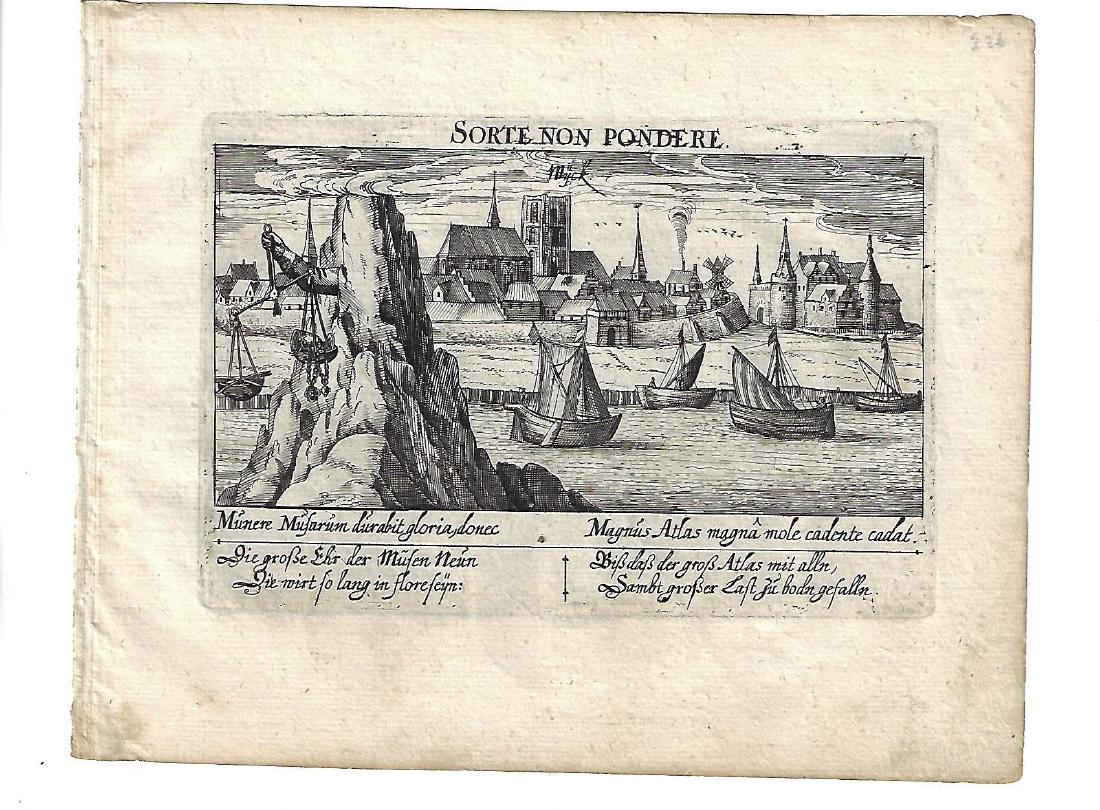 SORTE NON PONDERE.
Mÿck
Munere Musarum durabit gloria, donec
Magnus Atlas magnâ mole cadente cadat.
Die große Ehr der Müsen Neün
Die wirt so lang in flore seÿn:
Biß daß der groß Atlas mit alln,
Sambt großer Last zu bodn gefalln.